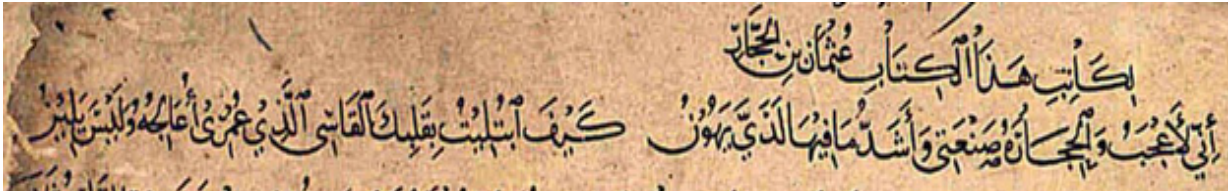 لكاتب هذا الكتاب عثمان بن الحجار
أني لأعجب والحجارة صنعتي وأشد ما فيها لدي يهون كيف ابتليت بقلبك القاسي الذي عمري أعالجه وليس يلين